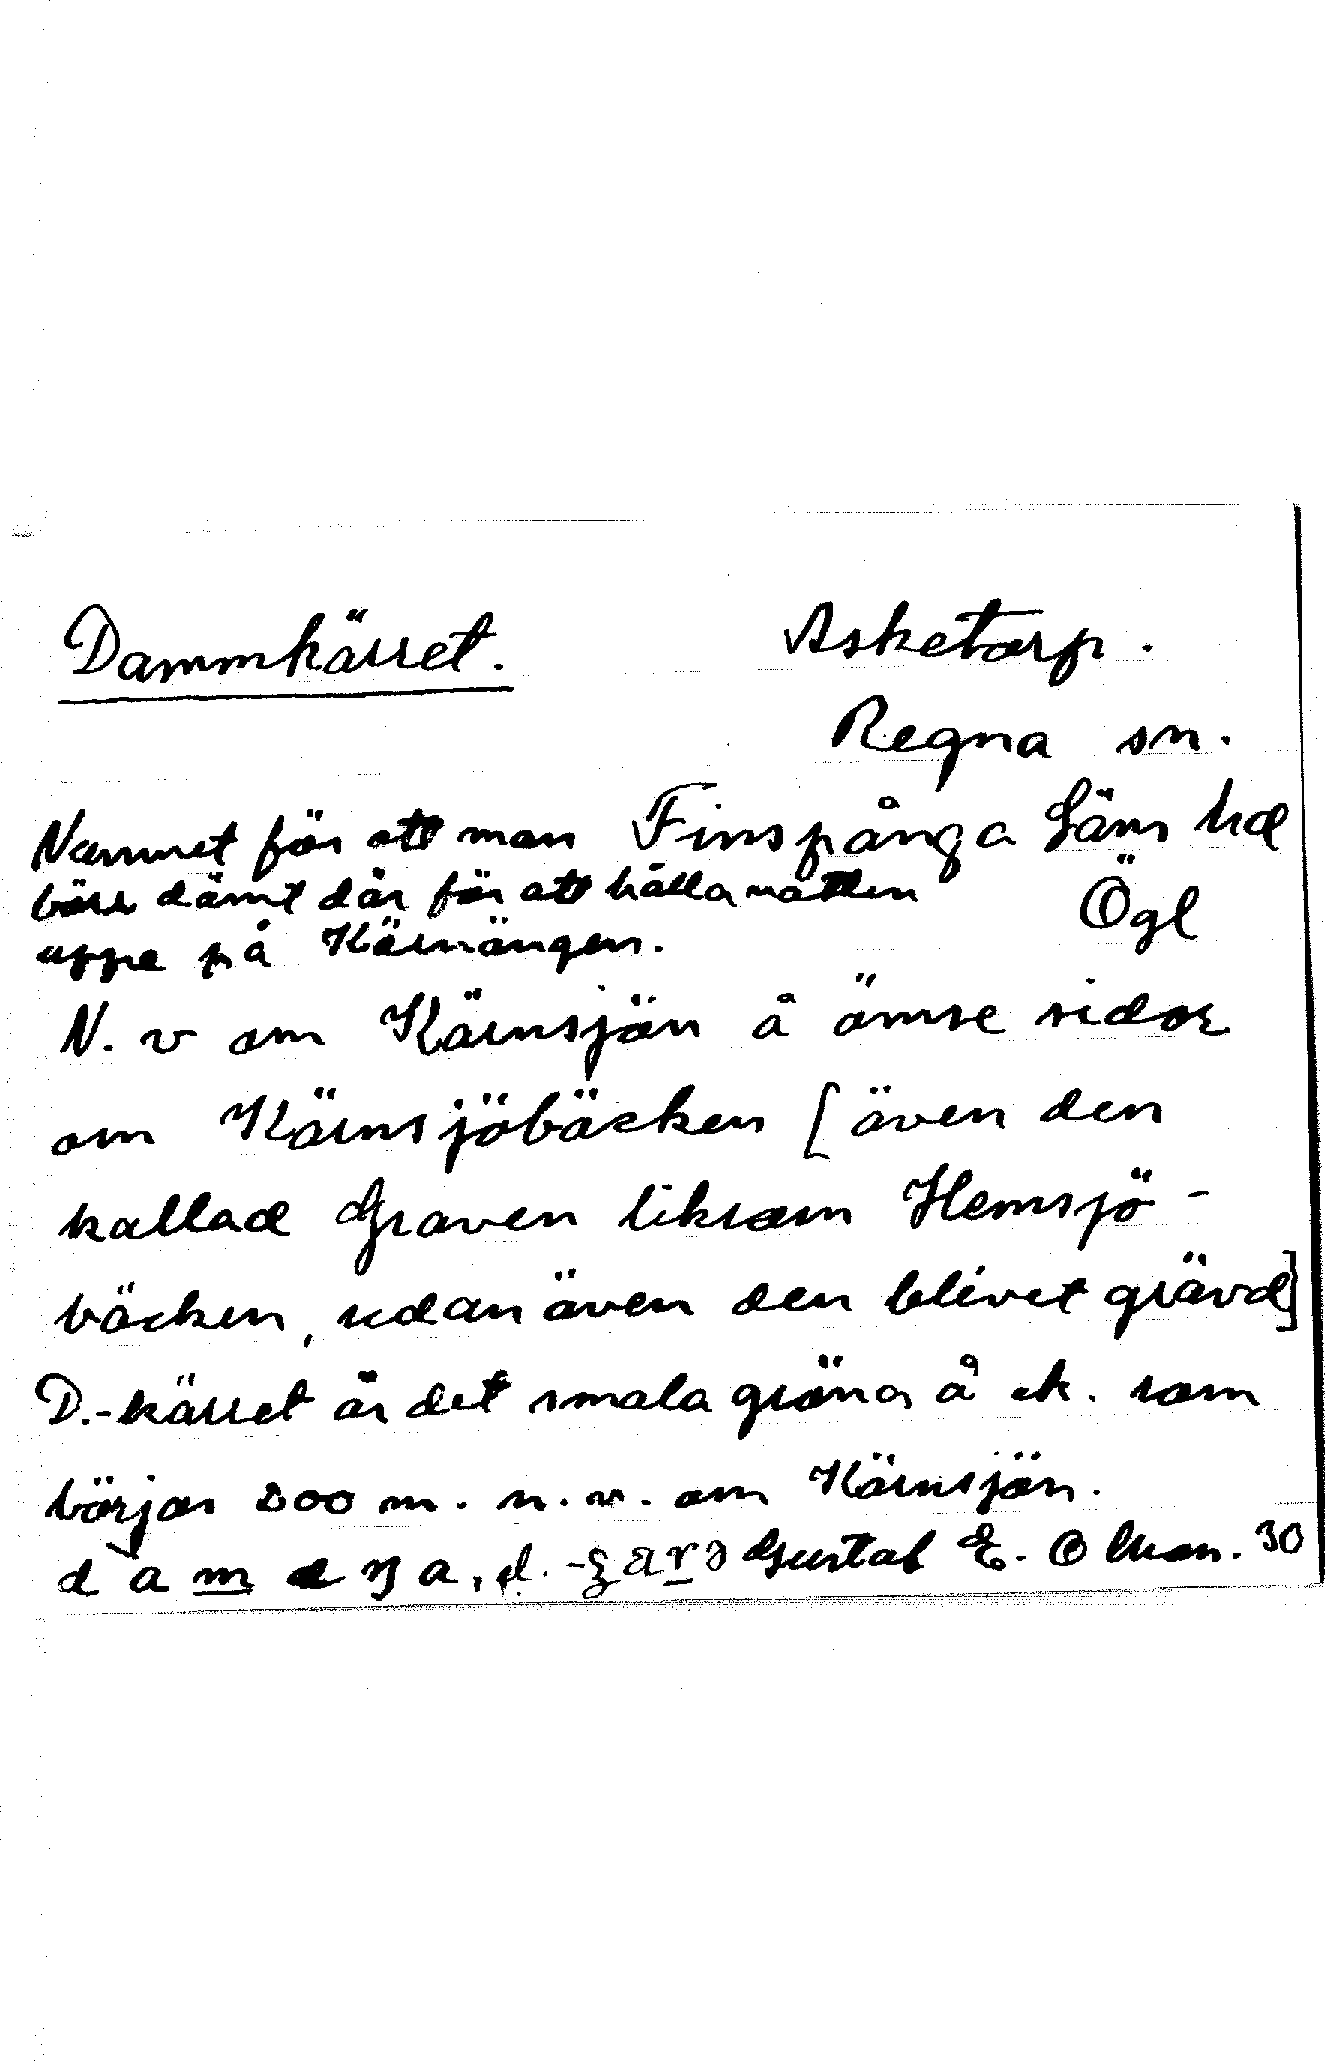 Dammkärret.
Asketorp.
Regna sn.
Finspånga Läns hd
Ögl
Namnet för att man
där för att hålla vatten
uppe på Kärnängen.
N. v om Kärnsjön å ömse sidor
om Kärnsjöbäcken [även den
kallad Graven liksom Hemsjö-
bäcken, sedan även den blivet grävd]
D.-kärret är det smala gröna å ek. som
börjar 200 m. n. v. om Kärnsjön.
Gustaf E. Olson. 30